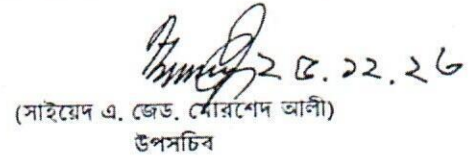 ২৫.১২.২৬
(সাইয়েদ এ. জেড. মোরশেদ আলী)
উপসচিব